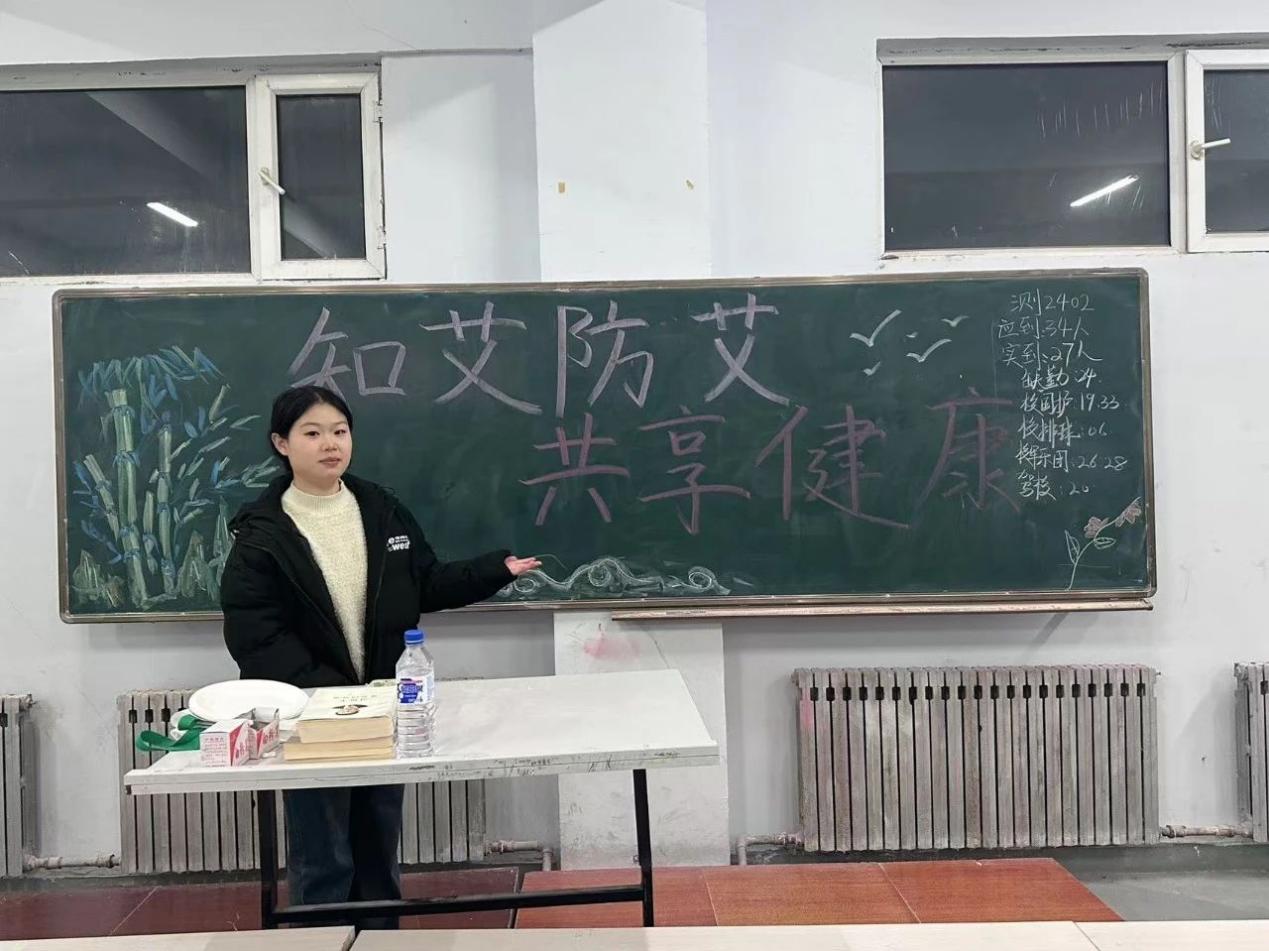 知艾防艾
共享健康
测2402
应到:34人
实到:27人
缺勤:24.
校国护:19.33
校排球:06
管乐团:26 28
驾校:20